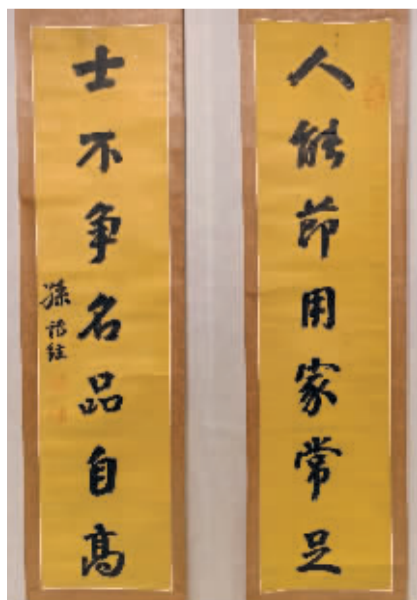 人能節用家常足
士不爭名品自高
孫詒經